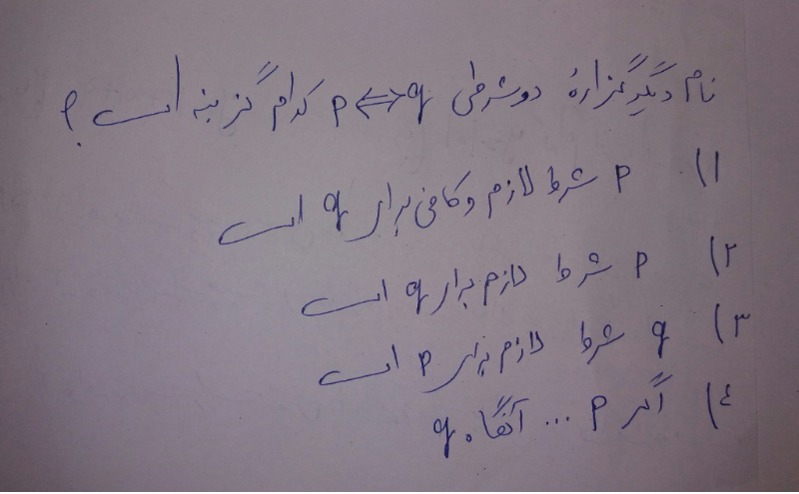 نام دیگر گزارهٔ دوشرطی p⇔q کدام گزینه است؟
۱) p شرط لازم و کافی برای q است
۲) p شرط لازم برای q است
۳) q شرط لازم برای p است
٤) اگر p ... آنگاه q.